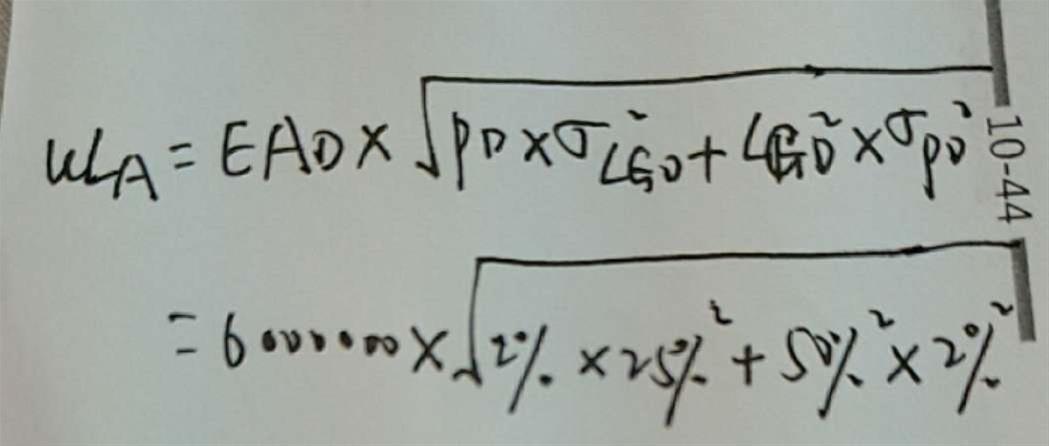 ULA = EAD × √PD × σ²LGD + LGD² × σPD²
10-44
= 6000000 × √2% × 25%² + 50%² × 2%²